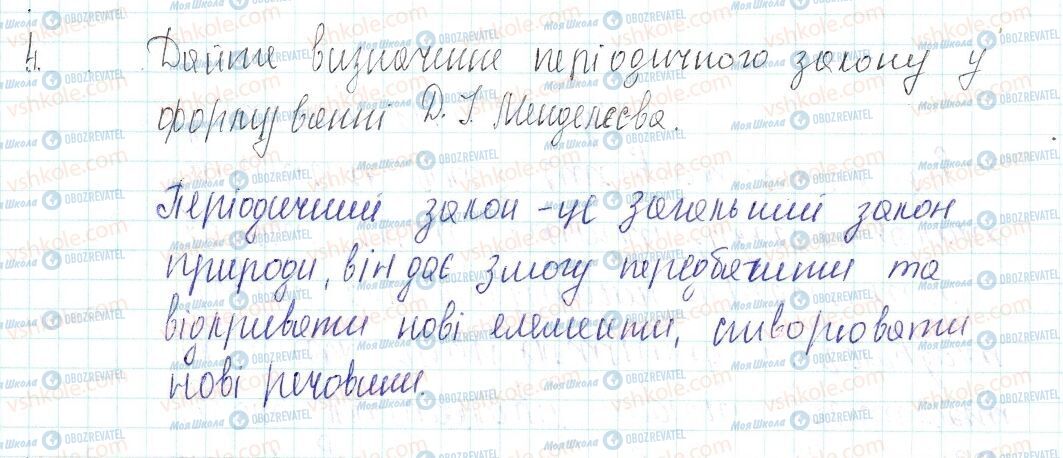 4. Дайте визначення періодичного закону у
формуванні Д. І. Менделєєва.
Періодичний закон - це загальний закон
природи, він дає змогу передбачити та
відкривати нові елементи, створювати
нові речовини.